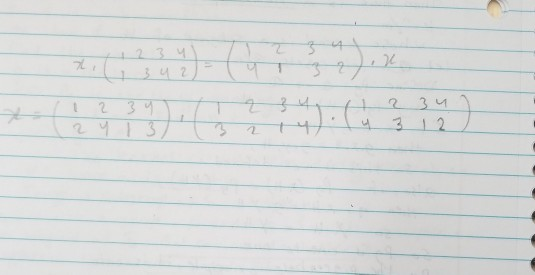 x · ( 1 2 3 4 / 1 3 4 2 ) = ( 1 2 3 4 / 4 1 3 2 ) · x
x = ( 1 2 3 4 / 2 4 1 3 ) · ( 1 2 3 4 / 3 2 1 4 ) · ( 1 2 3 4 / 4 3 1 2 )